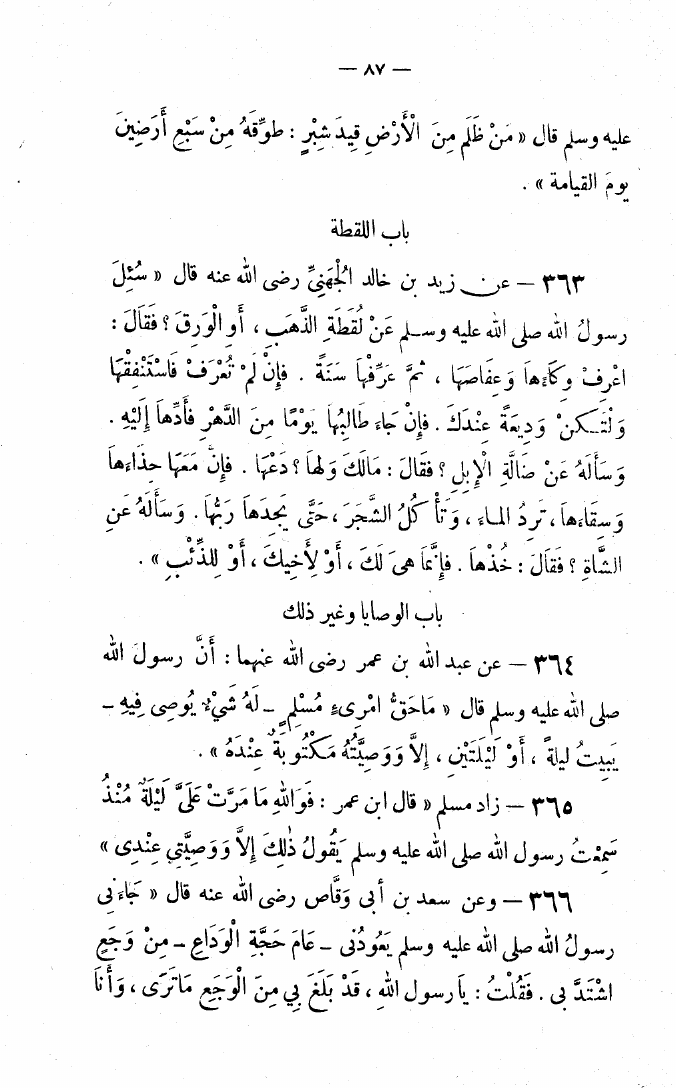 — ٨٧ —
عليه وسلم قال « مَنْ ظَلَم مِنَ الْأَرْضِ قِيدَ شِبْرٍ : طوِّقَهُ مِنْ سَبْعِ أَرَضِينَ
يومَ القيامة » .
باب اللقطة
٣٦٣ – عن زيد بن خالد الْجُهَنِيِّ رضى الله عنه قال « سُئلَ
رسولُ الله صلى الله عليه وسلم عَنْ لُقَطَةِ الذَّهَبِ ، أَوِ الْوَرِقِ ؟ فَقَالَ :
اعْرِفْ وِكَاءَهاَ وَعِفَاصَهَا ، ثمَّ عَرِّفْهاَ سَنَةً . فإِنْ لَمْ تُعْرَفْ فَاسْتَنْفِقْهَا
وَلْتَكنْ وَدِيعَةً عِنْدَكَ . فإِنْ جَاءَ طَالِبُهَا يَوْمًا مِنَ الدَّهْرِ فَأَدِّهاَ إِلَيْهِ .
وَسأَلَهُ عَنْ ضَالَّةِ الْإِبِلِ ؟ فَقَالَ : مَالَكَ وَلهاَ ؟ دَعْهَا . فإِنَّ مَعَهَا حِذَاءَهاَ
وَسِقَاءَهاَ ، تَرِدُ الماءَ ، وَتَأْكُلُ الشَّجَرَ ، حَتَّى يَجِدَهاَ رَبُّهاَ . وَسأَلَهُ عَنِ
الشَّاةِ ؟ فَقَالَ : خُذْهاَ . فإِنَّمَا هىَ لَكَ ، أَوْ لِأَخِيكَ ، أَوْ لِلذِّئْبِ » .
باب الوصايا وغير ذلك
٣٦٤ – عن عبد الله بن عمر رضى الله عنهما : أَنَّ رسولَ الله
صلى الله عليه وسلم قال « مَاحَقُّ امْرِىءٍ مُسْلِمٍ – لَهُ شَيْءٌ يُوصِى فِيهِ –
يَبِيتُ ليلةً ، أَوْ لَيْلَتَيْنِ ، إِلاَّ وَوَصِيَّتُهُ مَكْتُوبَةٌ عِنْدَهُ » .
٣٦٥ – زاد مسلم « قال ابن عمر : فَوَاللهِ مَا مَرَّتْ عَلَيَّ لَيْلَةٌ مُنْذُ
سَمِعْتُ رسول الله صلى الله عليه وسلم يَقُولُ ذٰلِكَ إِلاَّ وَوَصِيَّتِي عِنْدِى »
٣٦٦ – وعن سعد بن أبى وَقَّاص رضى الله عنه قال « جَاءَنِي
رسولُ الله صلى الله عليه وسلم يَعُودُنى – عَامَ حَجَّةِ الْوَدَاعِ – مِنْ وَجَعٍ
اشْتَدَّ بى . فَقُلْتُ : يَا رسول اللهِ ، قَدْ بَلَغَ بِي مِنَ الْوَجَعِ مَا تَرَى ، وَأَنَا